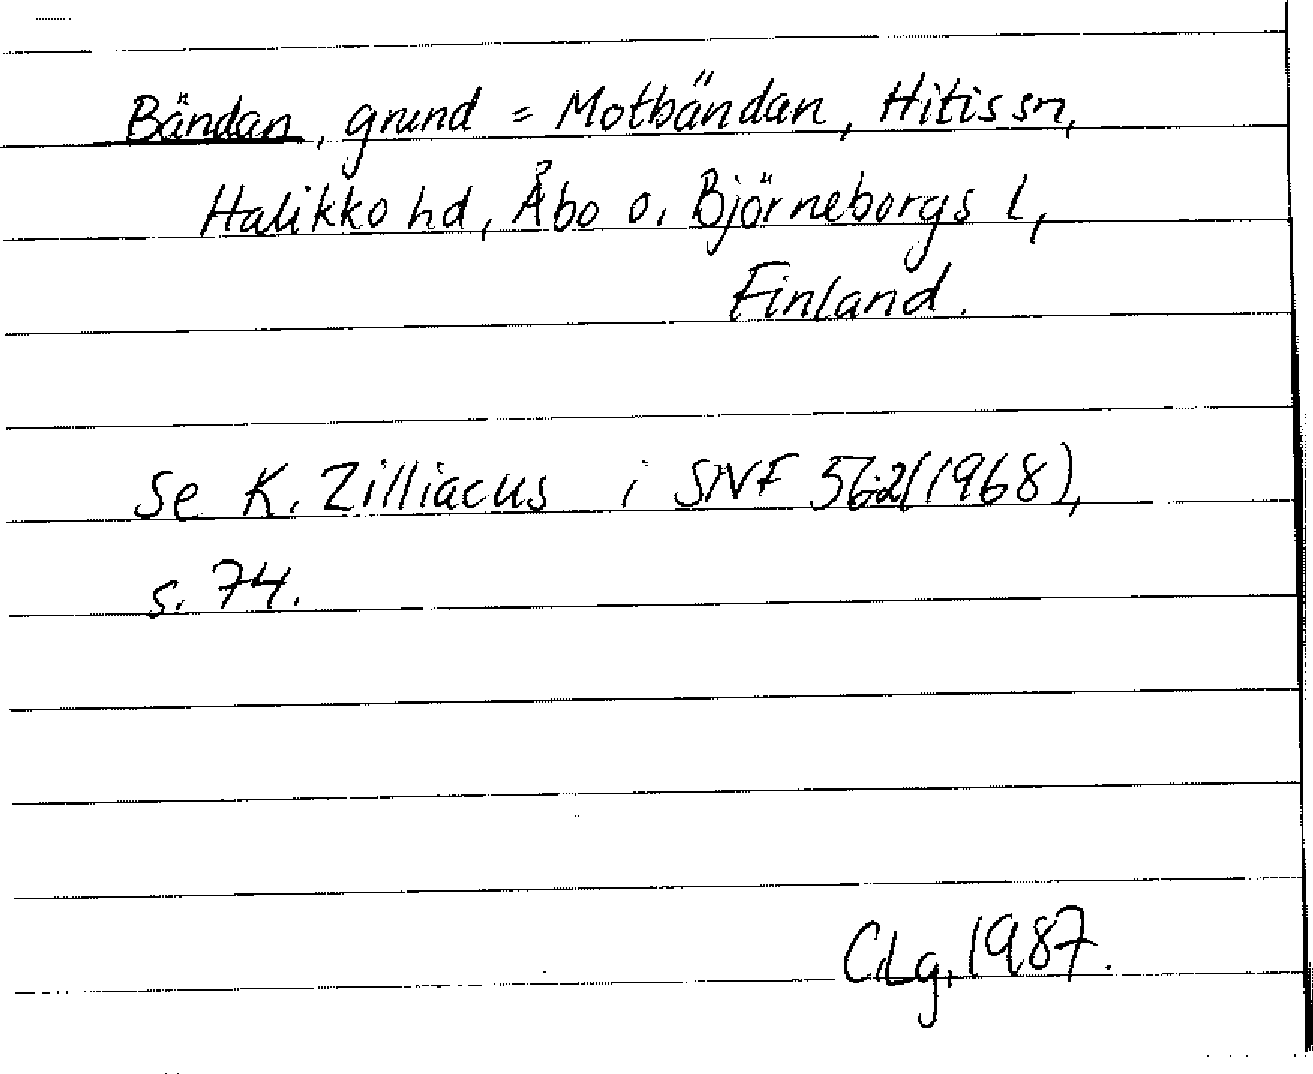 Bändan, grund = Motbändan, Hitis sn,
Halikko hd, Åbo o. Björneborgs l,
Finland.
Se K. Zilliacus i SNF 562(1968),
s. 74.
C.Lg, 1987.